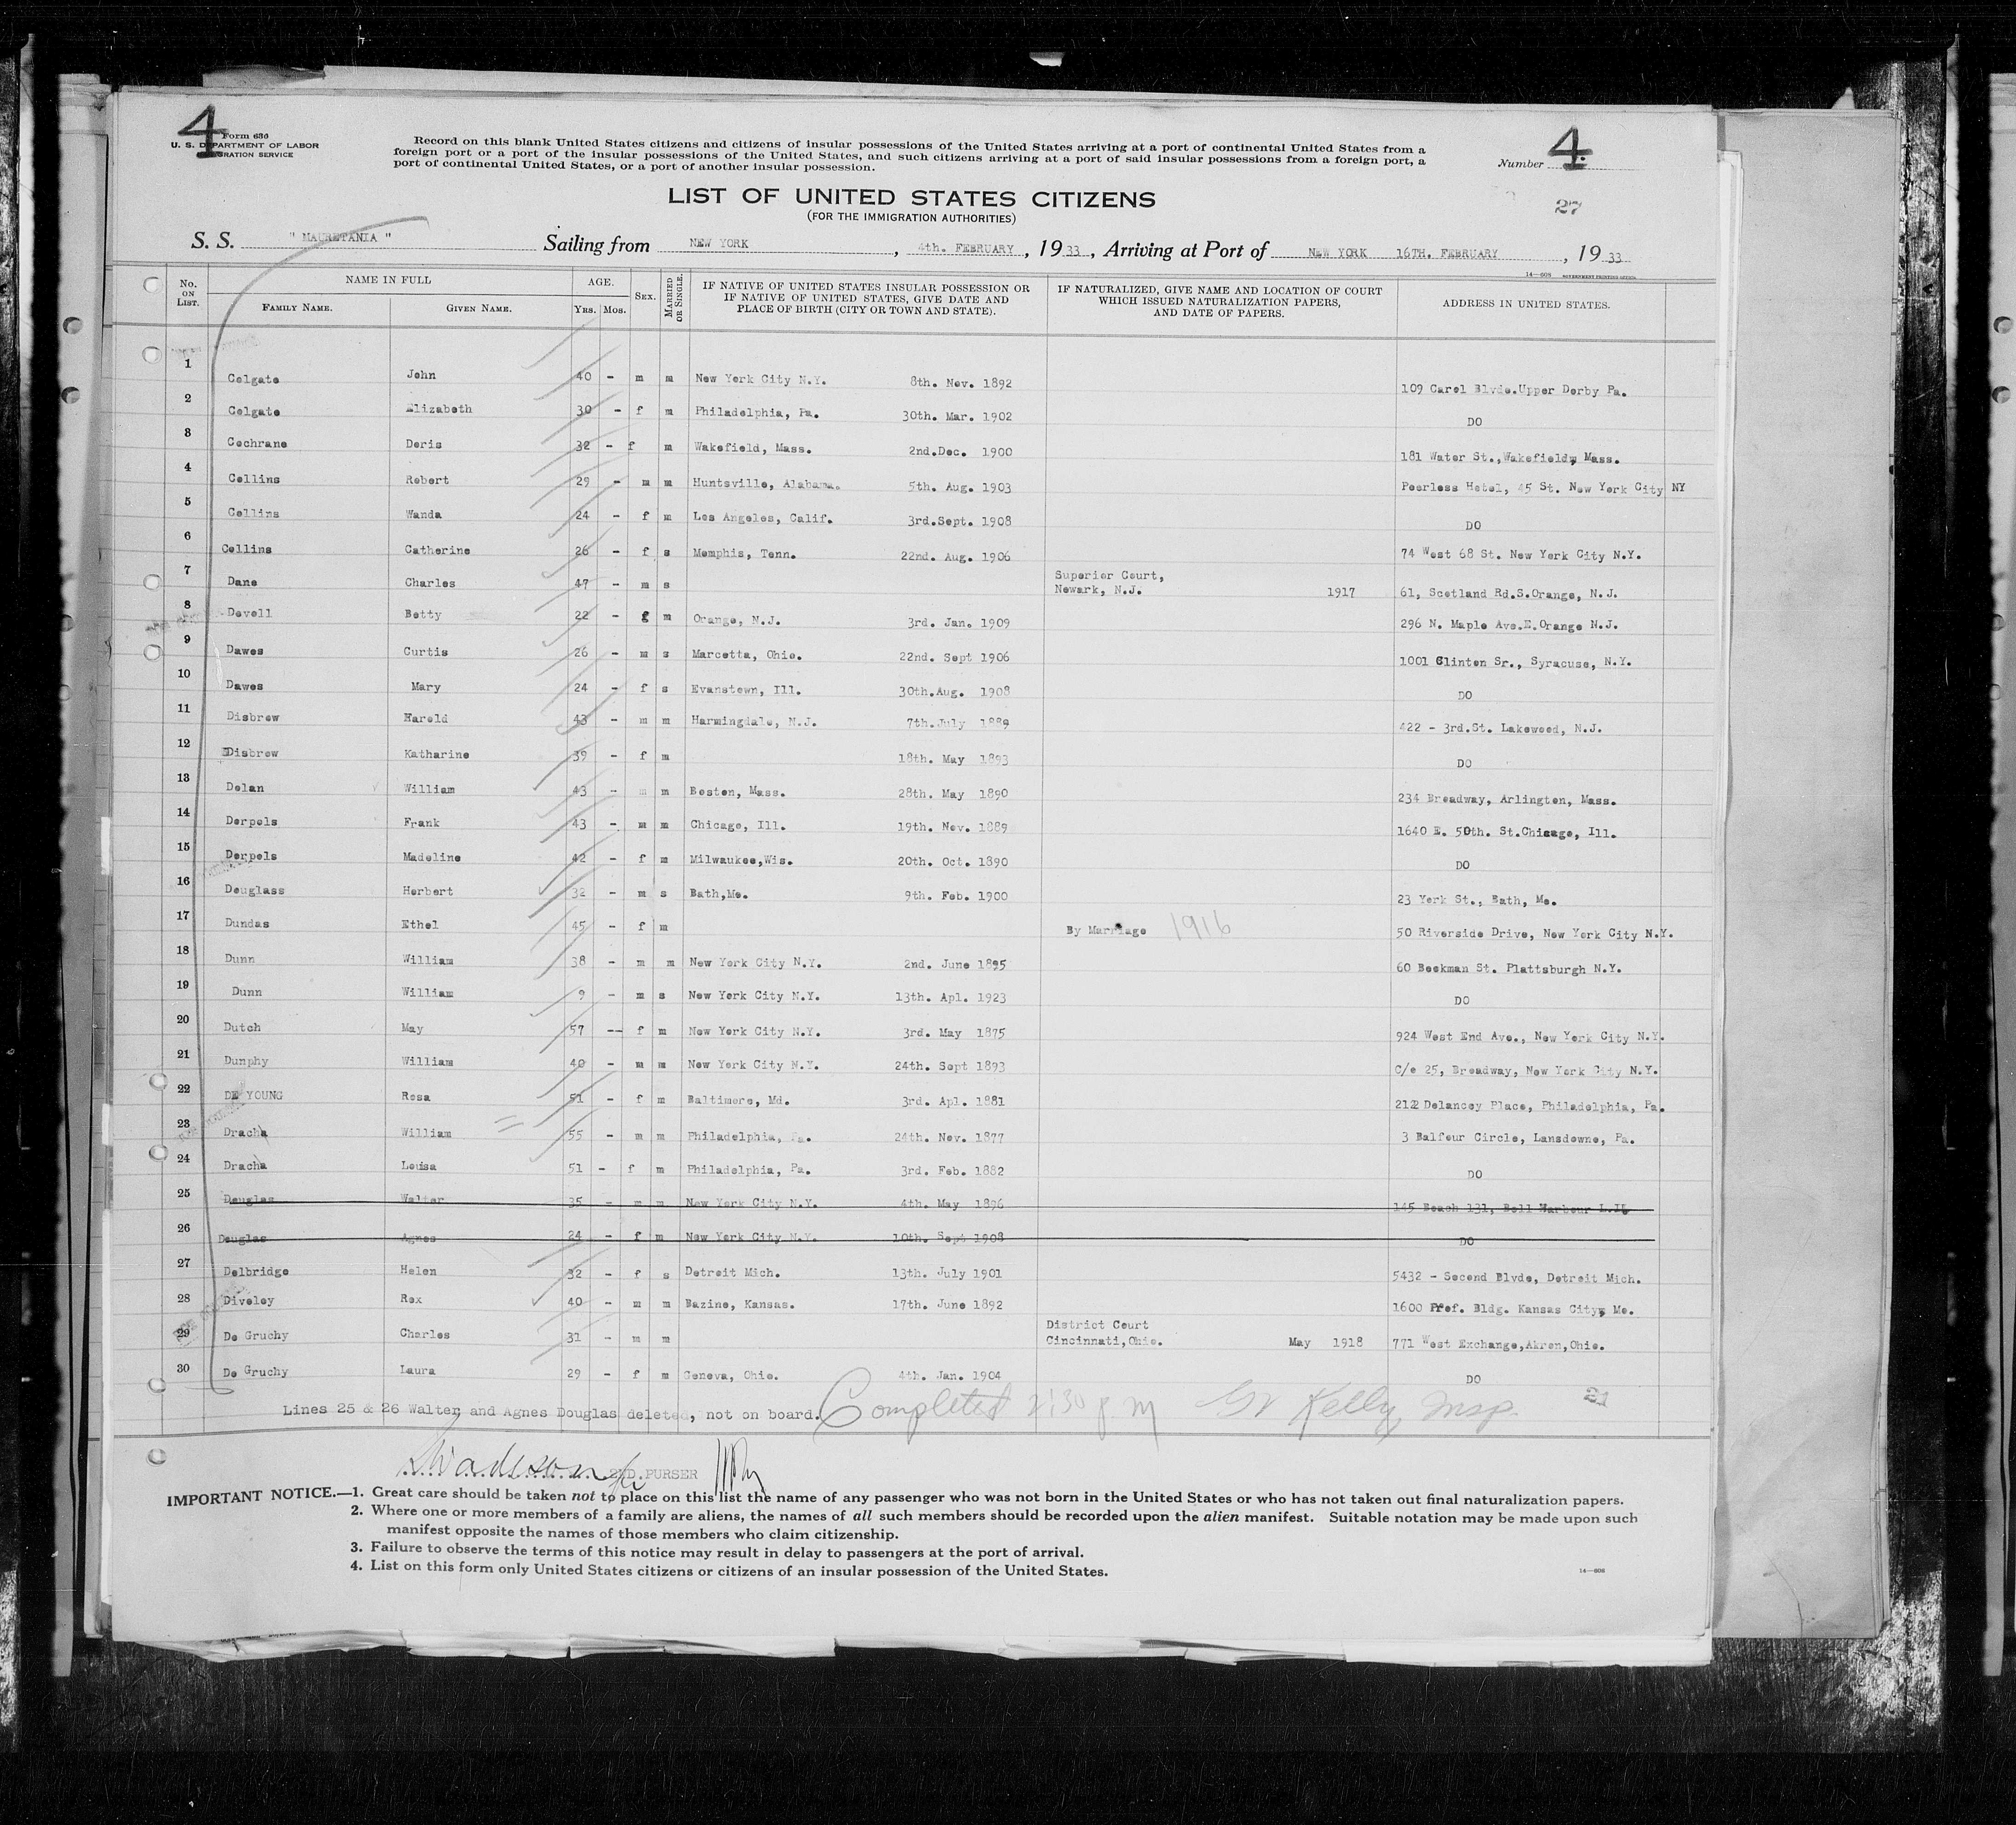 4 4
Form 630
U. S. DEPARTMENT OF LABOR
IMMIGRATION SERVICE
Record on this blank United States citizens and citizens of insular possessions of the United States arriving at a port of continental United States from a
foreign port or a port of the insular possessions of the United States, and such citizens arriving at a port of said insular possessions from a foreign port, a
port of continental United States, or a port of another insular possession.
Number
LIST OF UNITED STATES CITIZENS
(FOR THE IMMIGRATION AUTHORITIES)
27
S. S. " MAURETANIA " Sailing from NEW YORK , 4th. FEBRUARY , 19 33 , Arriving at Port of NEW YORK 16TH. FEBRUARY , 19 33
14—608 GOVERNMENT PRINTING OFFICE
No. ON LIST. NAME IN FULL AGE. SEX. MARRIED OR SINGLE. IF NATIVE OF UNITED STATES INSULAR POSSESSION OR IF NATIVE OF UNITED STATES, GIVE DATE AND PLACE OF BIRTH (CITY OR TOWN AND STATE). IF NATURALIZED, GIVE NAME AND LOCATION OF COURT WHICH ISSUED NATURALIZATION PAPERS, AND DATE OF PAPERS. ADDRESS IN UNITED STATES.
FAMILY NAME. GIVEN NAME. Yrs. Mos.
1 Colgate John 40 - m m New York City N.Y. 8th. Nov. 1892 109 Carol Blvde.Upper Derby Pa.
2 Colgate Elizabeth 30 - f m Philadelphia, Pa. 30th. Mar. 1902 DO
3 Cochrane Doris 32 - f m Wakefield, Mass. 2nd.Dec. 1900 181 Water St.,Wakefield, Mass.
4 Collins Robert 29 - m m Huntsville, Alabama. 5th. Aug. 1903 Peerless Hotel, 45 St. New York City NY
5 Collins Wanda 24 - f m Los Angeles, Calif. 3rd.Sept. 1908 DO
6 Collins Catherine 26 - f s Memphis, Tenn. 22nd. Aug. 1906 74 West 68 St. New York City N.Y.
7 Dane Charles 47 - m s Superior Court, Newark, N.J. 1917 61, Scotland Rd.S.Orange, N.J.
8 Devell Betty 22 - m Orange, N.J. 3rd. Jan. 1909 296 N. Maple Ave.E.Orange N.J.
9 Dawes Curtis 26 - m s Marcetta, Ohio. 22nd. Sept 1906 1001 Clinton Sr., Syracuse, N.Y.
10 Dawes Mary 24 - f s Evanstown, Ill. 30th.Aug. 1908 DO
11 Disbrow Harold 43 - m m Harmingdale, N.J. 7th.July 1889 422 - 3rd.St. Lakewood, N.J.
12 Disbrow Katharine 39 - f m 18th. May 1893 DO
13 Dolan William 43 - m m Boston, Mass. 28th. May 1890 234 Broadway, Arlington, Mass.
14 Dorpols Frank 43 - m m Chicago, Ill. 19th. Nov. 1889 1640 E. 50th. St.Chicago, Ill.
15 Dorpols Madeline 42 - f m Milwaukee,Wis. 20th. Oct. 1890 DO
16 Douglass Herbert 32 - m s Bath,Me. 9th. Feb. 1900 23 York St., Bath, Me.
17 Dundas Ethel 45 - f m By Marriage 1916 50 Riverside Drive, New York City N.Y.
18 Dunn William 38 - m m New York City N.Y. 2nd. June 1895 60 Beekman St. Plattsburgh N.Y.
19 Dunn William 9 - m s New York City N.Y. 13th. Apl. 1923 DO
20 Dutch May 57 -- f m New York City N.Y. 3rd. May 1875 924 West End Ave., New York City N.Y.
21 Dunphy William 40 - m m New York City N.Y. 24th. Sept 1893 C/o 25, Broadway, New York City N.Y.
22 DE YOUNG Rosa 51 - f m Baltimore, Md. 3rd. Apl. 1881 2122 Delancey Place, Philadelphia, Pa.
23 Dracha William 55 - m m Philadelphia, Pa. 24th. Nov. 1877 3 Balfour Circle, Lansdowne, Pa.
24 Dracha Louisa 51 - f m Philadelphia, Pa. 3rd. Feb. 1882 DO
25 Douglas Walter 35 - m m New York City N.Y. 4th. May 1896 145 Beach 131, Bell Harbour L.I.
26 Douglas Agnes 24 - f m New York City N.Y. 10th. Sept 1908 DO
27 Delbridge Helen 32 - f s Detroit Mich. 13th. July 1901 5432 - Second Blvde, Detroit Mich.
28 Diveley Rex 40 - m m Bazine, Kansas. 17th. June 1892 1600 Prof. Bldg. Kansas City, Mo.
29 De Gruchy Charles 31 - m m District Court Cincinnati,Ohio. May 1918 771 West Exchange,Akron,Ohio.
30 De Gruchy Laura 29 - f m Geneva, Ohio. 4th. Jan. 1904 DO
Lines 25 & 26 Walter and Agnes Douglas deleted, not on board. Completed 2:30 p.m Kelly, Insp. 21
2ND. PURSER
IMPORTANT NOTICE.—1. Great care should be taken not to place on this list the name of any passenger who was not born in the United States or who has not taken out final naturalization papers.
2. Where one or more members of a family are aliens, the names of all such members should be recorded upon the alien manifest. Suitable notation may be made upon such
manifest opposite the names of those members who claim citizenship.
3. Failure to observe the terms of this notice may result in delay to passengers at the port of arrival.
4. List on this form only United States citizens or citizens of an insular possession of the United States.
14—608